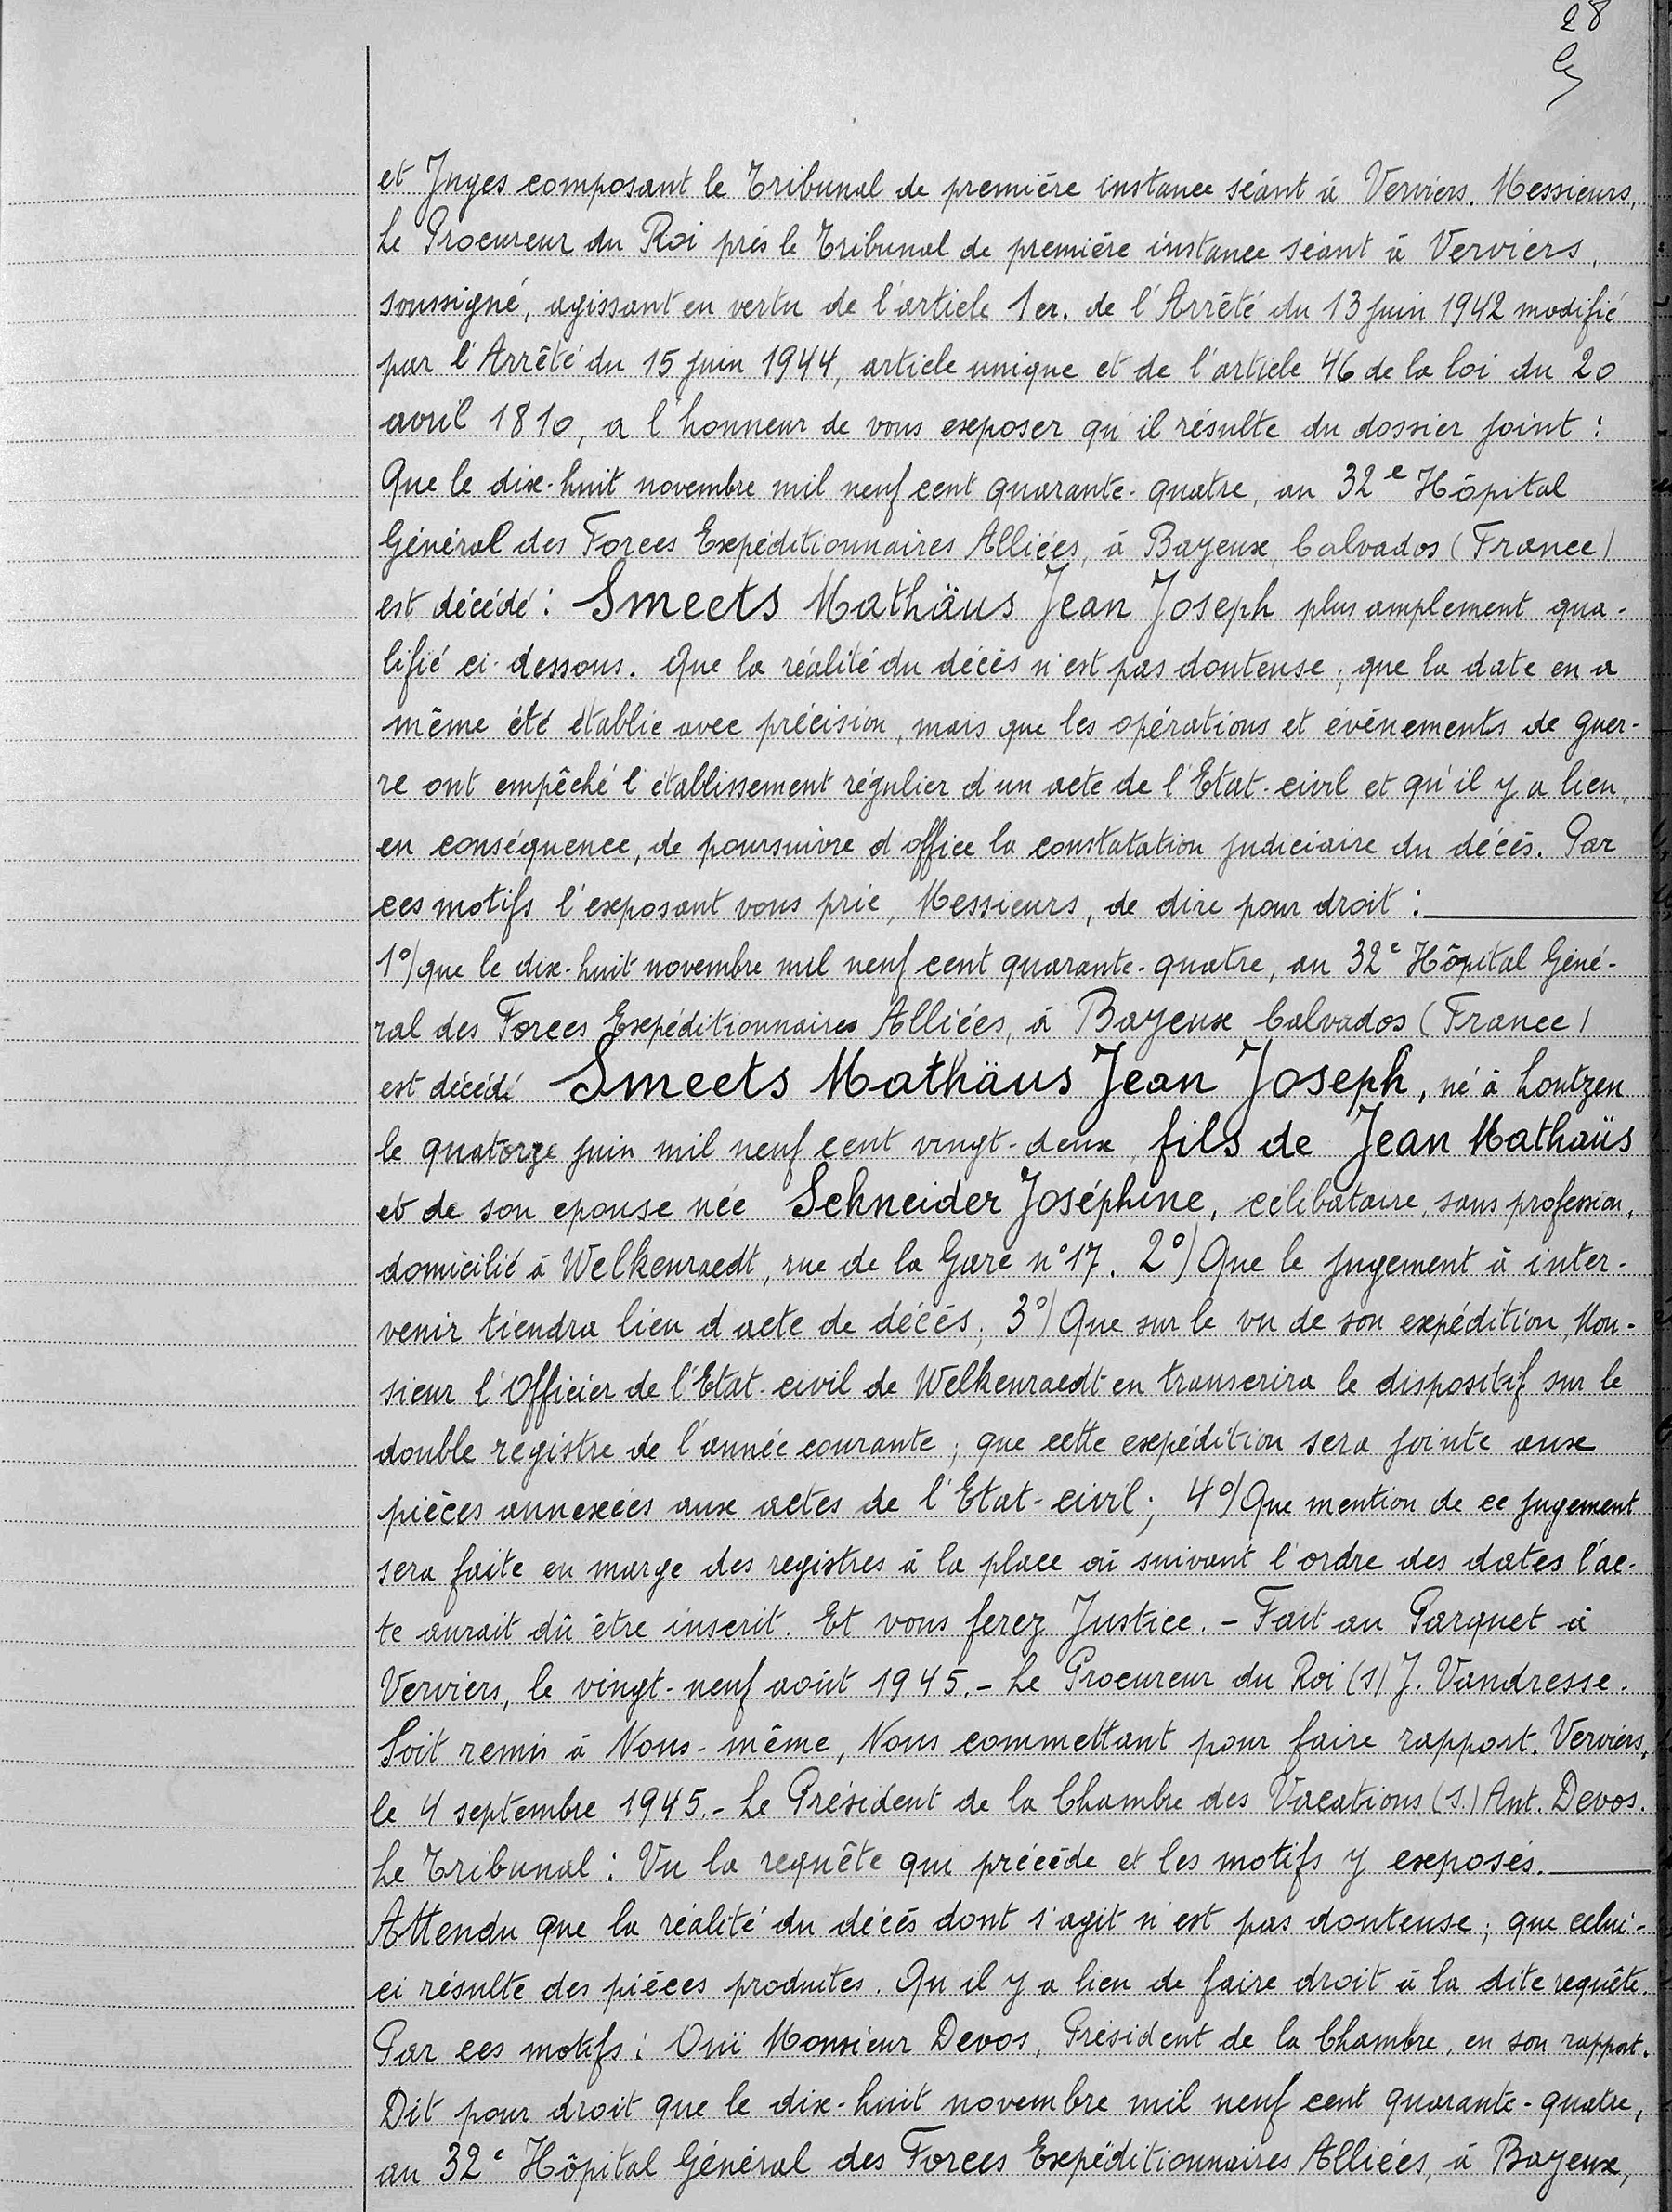 28
et Juges composant le Tribunal de première instance séant à Verviers. Messieurs,
Le Procureur du Roi près le Tribunal de première instance séant à Verviers,
soussigné, agissant en vertu de l'article 1er. de l'Arrêté du 13 juin 1942 modifié
par l'Arrêté du 15 juin 1944, article unique et de l'article 46 de la loi du 20
avril 1810, a l'honneur de vous exposer qu'il résulte du dossier joint :
Que le dix-huit novembre mil neuf cent quarante-quatre, au 32e Hôpital
Général des Forces Expéditionnaires Alliées, à Bayeux, Calvados (France)
est décédé : Smeets Mathäus Jean Joseph plus amplement qua-
lifié ci-dessous. Que la réalité du décès n'est pas douteuse; que la date en a
même été établie avec précision, mais que les opérations et évènements de guer-
re ont empêché l'établissement régulier d'un acte de l'Etat-civil et qu'il y a lieu,
en conséquence, de poursuivre d'office la constatation judiciaire du décès. Par
ces motifs l'exposant vous prie, Messieurs, de dire pour droit :
1°/ que le dix-huit novembre mil neuf cent quarante-quatre, au 32e Hôpital Géné-
ral des Forces Expéditionnaires Alliées, à Bayeux Calvados (France)
est décédé Smeets Mathäus Jean Joseph, né à Lontzen
le quatorze juin mil neuf cent vingt-deux, fils de Jean Mathaüs
et de son epouse née Schneider Joséphine, célibataire, sans profession,
domicilié à Welkenraedt, rue de la Gare n°17. 2°/ Que le jugement à inter-
venir tiendra lieu d'acte de décès; 3°/ Que sur le vu de son expédition, Mon-
sieur l'Officier de l'Etat-civil de Welkenraedt en transcrira le dispositif sur le
double registre de l'année courante; que cette expédition sera jointe aux
pièces annexées aux actes de l'Etat-civil; 4°/ Que mention de ce jugement
sera faite en marge des registres à la place où suivant l'ordre des dates l'ac-
te aurait dû être inscrit. Et vous ferez Justice. - Fait au Parquet à
Verviers, le vingt-neuf août 1945. - Le Procureur du Roi (s) J. Vandresse.
Soit remis à Nous-même, Nous commettant pour faire rapport. Verviers,
le 4 septembre 1945. - Le Président de la Chambre des Vacations (s.) Ant. Devos.
Le Tribunal : Vu la requête qui précède et les motifs y exposés.
Attendu que la réalité du décès dont s'agit n'est pas douteuse; que celui-
ci résulte des pièces produites. Qu'il y a lieu de faire droit à la dite requête.
Par ces motifs : Ouï Monsieur Devos, Président de la Chambre, en son rapport.
Dit pour droit que le dix-huit novembre mil neuf cent quarante-quatre,
au 32e Hôpital Général des Forces Expéditionnaires Alliées, à Bayeux,